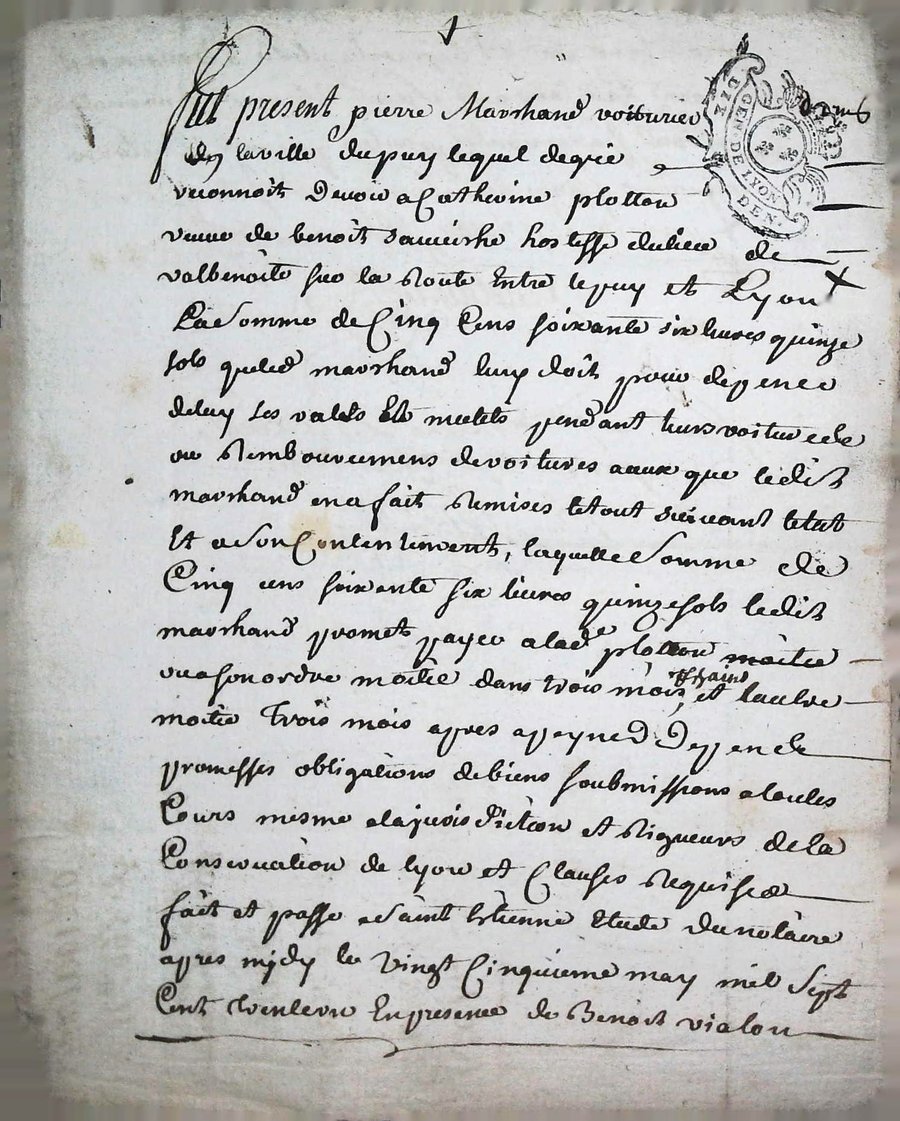 +
DIX
GEN. DE LYON
DEN.
Fut present pierre Marchand voiturier
de la ville du puy lequel de gré
reconnoit Devoir a Catherine plotton
veuve de benoit hostesse du lieu de
valbenoite sur la Route Entre le puy et Lyon
La Somme de Cinq Cens soixante six livres quinze
sols que led marchand luy doit pour depence
de luy ses valets Et mulets pendant leurs voitures
ou Rembourcemens de voitures a eux que ledit
marchand en a fait Remises le tout suivant letat
Et a son Contentement, laquelle Somme de
Cinq cens soixante six livres quinze sols ledit
marchand promet payer a lade plotton moitie
ou a son ordre moitie dans trois mois prochains, et lautre
moitie Trois mois apres a peyne D Depends
promesses obligations de biens soubmissions a toutes
Cours mesme a la jurisdiction et Rigueurs de la
Conservation de lyon et Clauses Requises
fait et passé a Saint Etienne Etude du notaire
apres midy le Vingt Cinquieme may mil Sept
Cent trente En presence de Benoit vialon